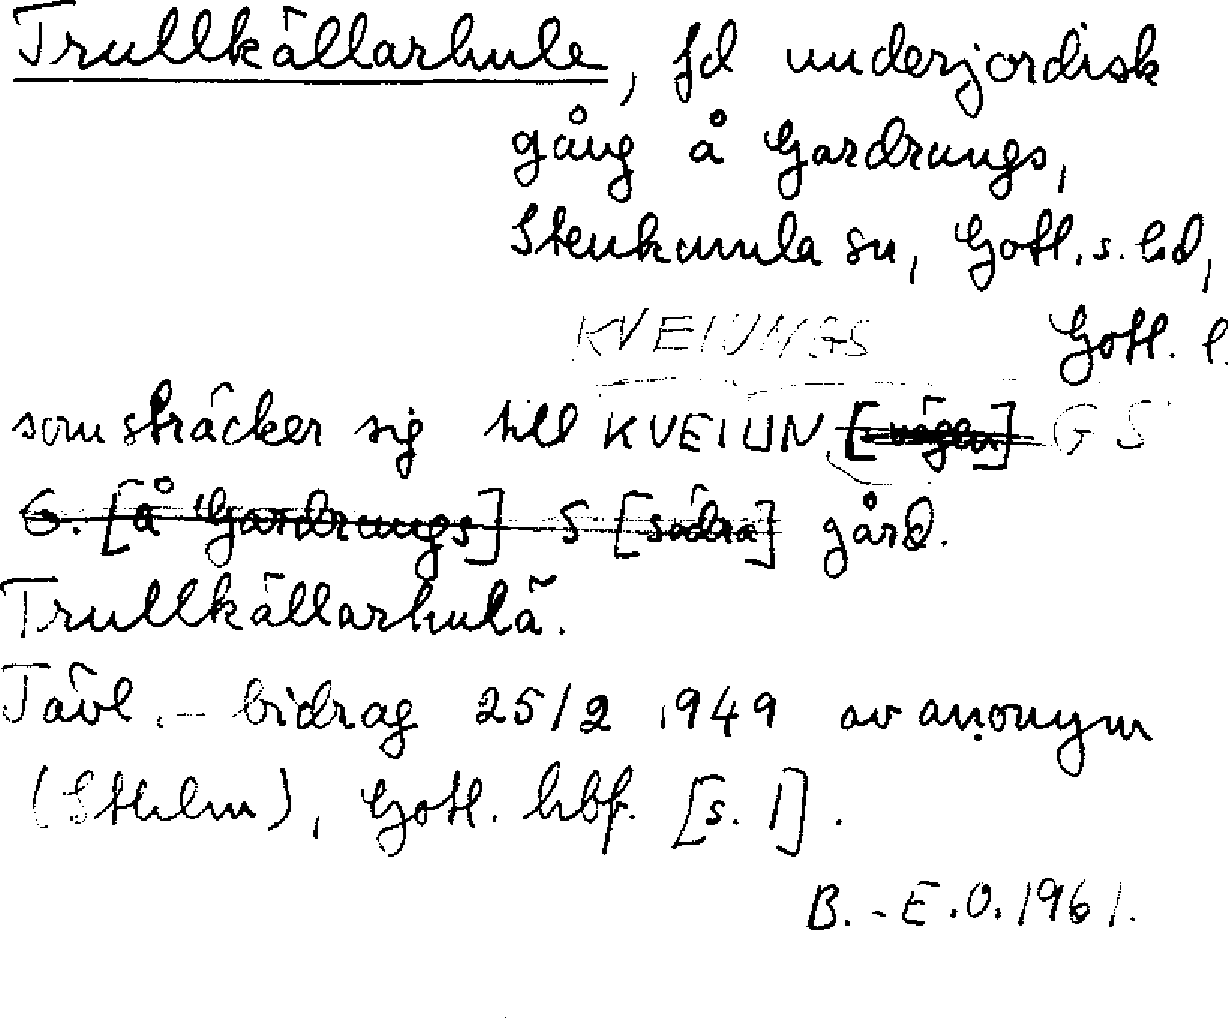 Trullkällarhule, fd underjordisk
gång å Gardrungs,
Stenkumla sn, Gotl. s. hd,
KVEIUNGS Gotl. l.
som sträcker sig till KVEIUN [vägen] GS
G. [å Gardrungs] S [södra] gård.
Trullkällarhulä.
Tävl. - bidrag 25/2 1949 av anonym
(Sthlm), Gotl. hbf. [s. 1].
B. - E.O. 1961.